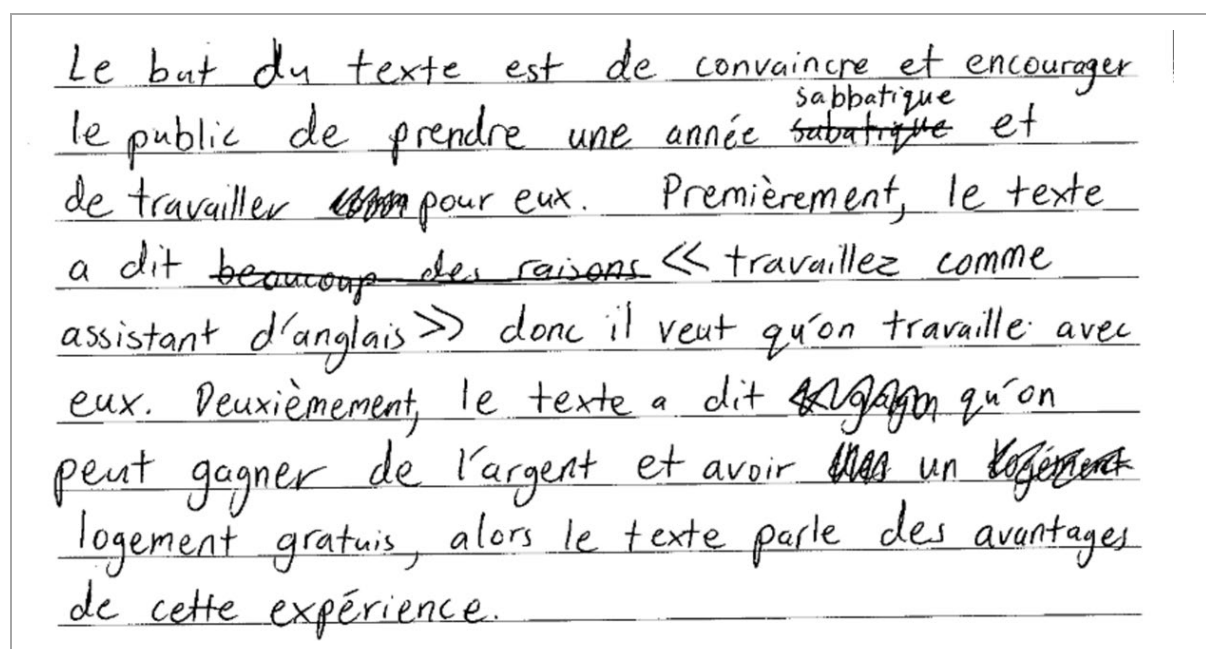 Le but du texte est de convaincre et encourager
sabbatique
le public de prendre une année subatrique et
de travailler pour eux. Premièrement, le texte
a dit beaucoup des raisons << travaillez comme
assistant d'anglais >> donc il veut qu'on travaille avec
eux. Deuxièmement, le texte a dit qu'on
peut gagner de l'argent et avoir un logement
logement gratuis, alors le texte parle des avantages
de cette expérience.